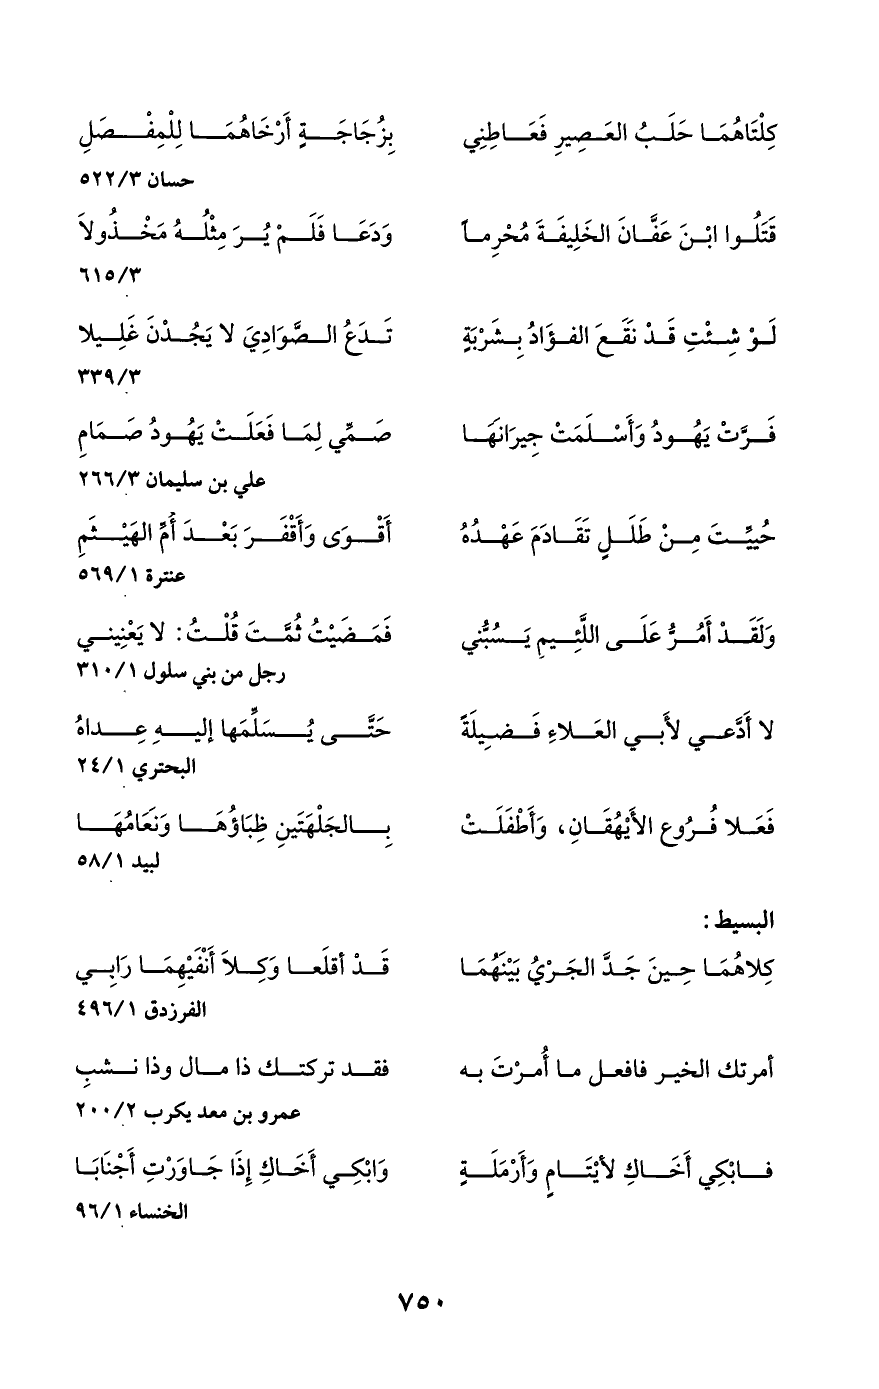 كِلْتَاهُمَا حَلَبُ العَصِيرِ فَعَاطِنِي بِزُجَاجَةٍ أَرْخَاهُمَا لِلْمِفْصَلِ
حسان ٥٢٢/٣
قَتَلُوا ابْنَ عَفَّانَ الخَلِيفَةَ مُحْرِماً وَدَعَا فَلَمْ يُرَ مِثْلُهُ مَخْذُولاَ
٦١٥/٣
لَوْ شِئْتِ قَدْ نَقَعَ الفؤَادُ بِشَرْبَةٍ تَدَعُ الصَّوَادِيَ لا يَجُدْنَ غَلِيلا
٣٣٩/٣
فَرَّتْ يَهُودُ وَأَسْلَمَتْ جِيرَانَهَا صَمِّي لِمَا فَعَلَتْ يَهُودُ صَمَامِ
علي بن سليمان ٢٦٦/٣
حُيِّيتَ مِنْ طَلَلٍ تَقَادَمَ عَهْدُهُ أَقْوَى وَأَقْفَرَ بَعْدَ أُمِّ الهَيْثَمِ
عنترة ٥٦٩/١
وَلَقَدْ أَمُرُّ عَلَى اللَّئِيمِ يَسُبُّني فَمَضَيْتُ ثُمَّتَ قُلْتُ: لا يَعْنِيني
رجل من بني سلول ٣١٠/١
لا أَدَّعي لأَبي العَلاءِ فَضِيلَةً حَتَّى يُسَلِّمَها إليهِ عِداهُ
البحتري ٢٤/١
فَعَلا فُرُوع الأَيْهُقَانِ، وَأَطْفَلَتْ بِالجَلْهَتَينِ ظِبَاؤُهَا وَنَعَامُهَا
لبيد ٥٨/١
البسيط :
كِلاهُمَا حِينَ جَدَّ الجَرْيُ بَيْنَهُمَا قَدْ أقلَعا وَكِلاَ أَنْفَيْهِمَا رَابِي
الفرزدق ٤٩٦/١
أمرتك الخير فافعل ما أُمرْتَ به فقد تركتك ذا مال وذا نشبِ
عمرو بن معد يكرب ٢٠٠/٢
فابْكِي أَخَاكِ لأَيْتَامٍ وَأَرْمَلَةٍ وَابْكِي أَخَاكِ إِذَا جَاوَرْتِ أَجْنَابَا
الخنساء ٩٦/١
٧٥٠